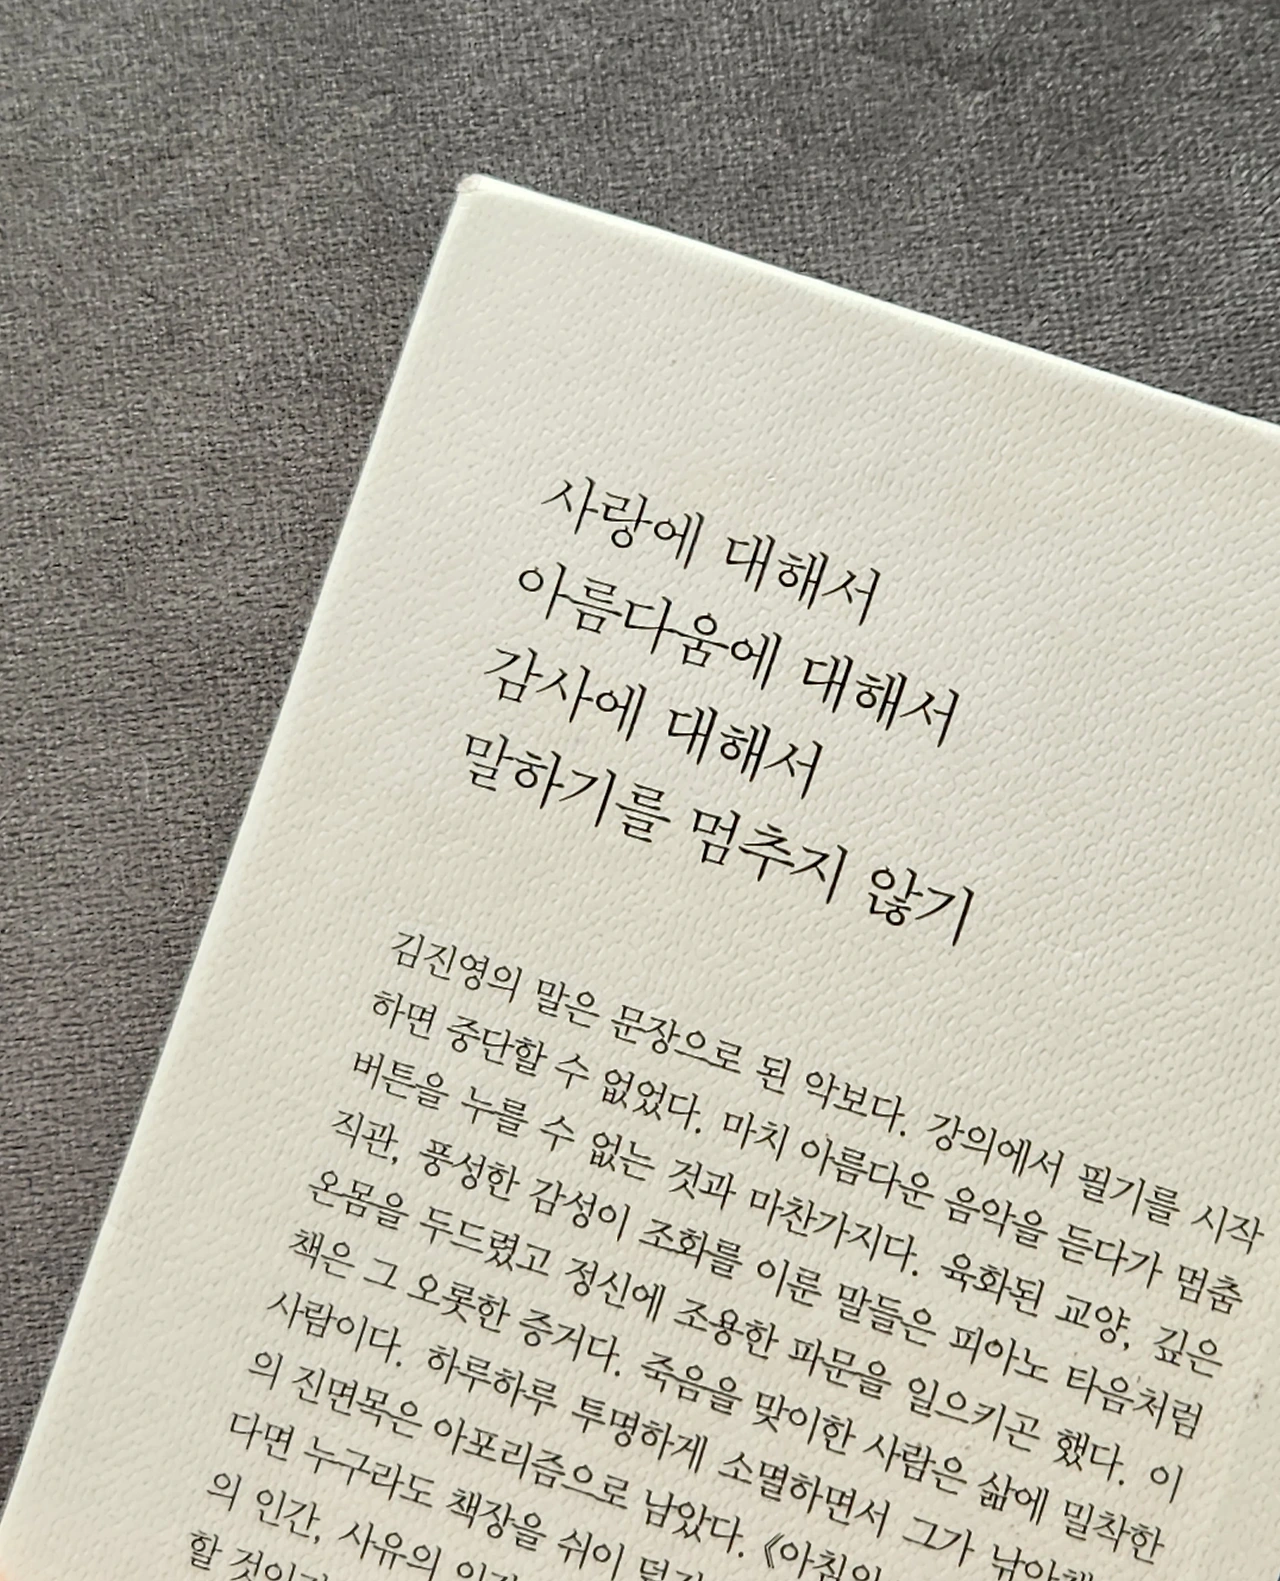 사랑에 대해서
아름다움에 대해서
감사에 대해서
말하기를 멈추지 않기
김진영의 말은 문장으로 된 악보다. 강의에서 필기를 시작
하면 중단할 수 없었다. 마치 아름다운 음악을 듣다가 멈춤
버튼을 누를 수 없는 것과 마찬가지다. 육화된 교양, 깊은
직관, 풍성한 감성이 조화를 이룬 말들은 피아노 타음처럼
온몸을 두드렸고 정신에 조용한 파문을 일으키곤 했다. 이
책은 그 오롯한 증거다. 죽음을 맞이한 사람은 삶에 밀착한
사람이다. 하루하루 투명하게 소멸하면서 그가 낚아챈
의 진면목은 아포리즘으로 남았다. 《아침의
다면 누구라도 책장을 쉬이 덮지
의 인간, 사유의 인간
할 것이다